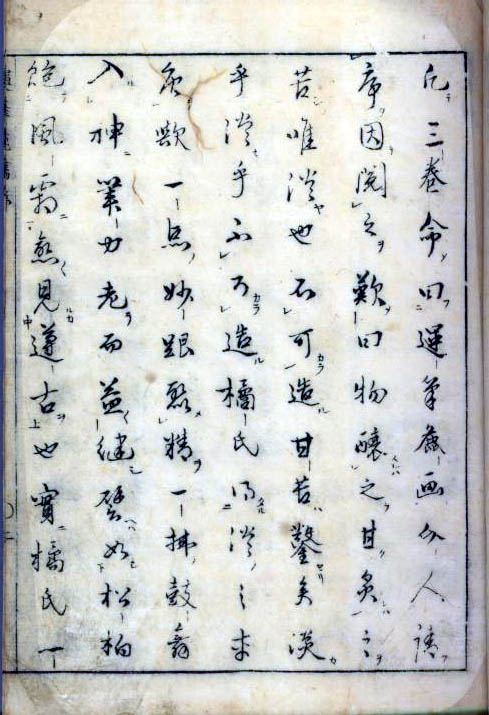 凡三卷命曰運筆麁画介人請
序因閲之歎曰物醸之甘炙之
苦唯淡也不可造甘苦鑿矣淡
乎淡乎不可造橘氏得淡之本
歟一点妙跟聚精一拂鼓舞
入神業老而益健譬如松柏
飽風霜愈見遵古也實橘氏一